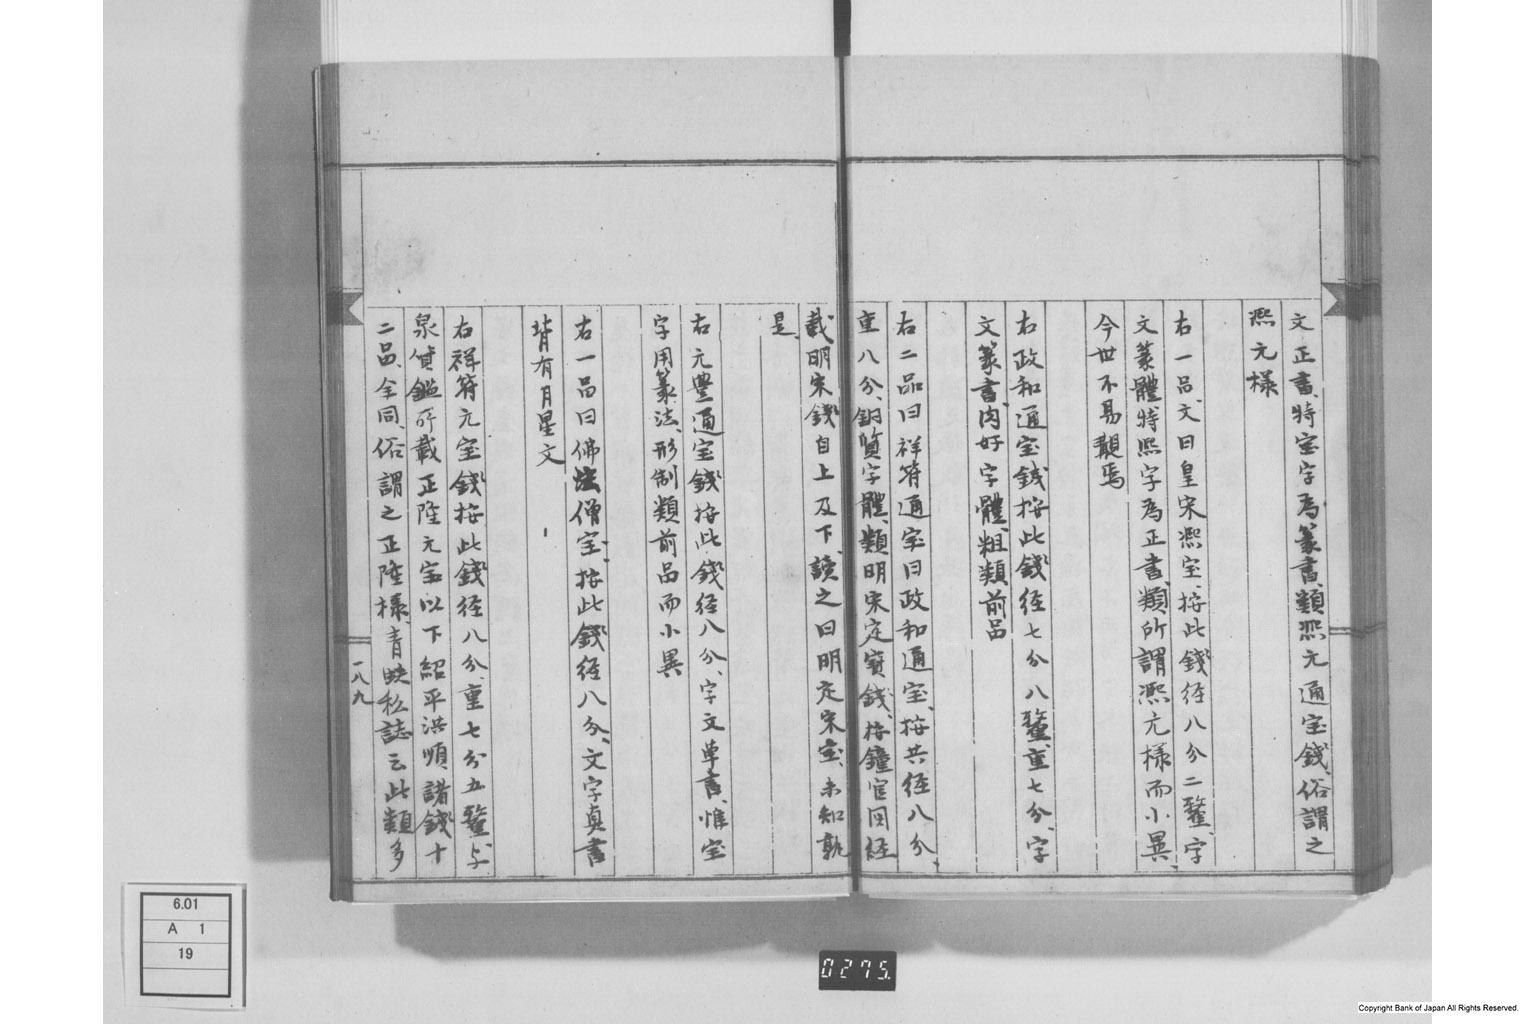 文正書、特宝字為篆書、類熙元通宝錢、俗謂之
熙元樣
右一品、文曰皇宋熙宝、按此錢径八分二釐、字
文篆體、特熙字為正書、類所謂熙元樣而小異、
今世不易觀焉
右政和通宝錢按此錢径七分八釐、重七分、字
文篆書、肉好字體、粗類前品
右二品曰祥符通宝曰政和通宝、按共径八分、
重八分、銅質字體、類明宋定寳錢、按鐘官図経
載明宋錢自上及下、讀之曰明定宋宝、未知孰
是
右元豊通宝錢按此錢径八分、字文草書、惟宝
字用篆法、形制類前品而小異
右一品曰佛法僧宝、按此錢径八分、文字真書
背有月星文
右祥符元宝錢按此錢径八分、重七分五釐、与
泉貨鑑所載正隆元宝以下紹平洪順、諸錢十
二品、全同、俗謂之正隆樣、青 私誌云此類多
一八九
6.01
A 1
19
0275.
Copyright Bank of Japan All Rights Reserved.